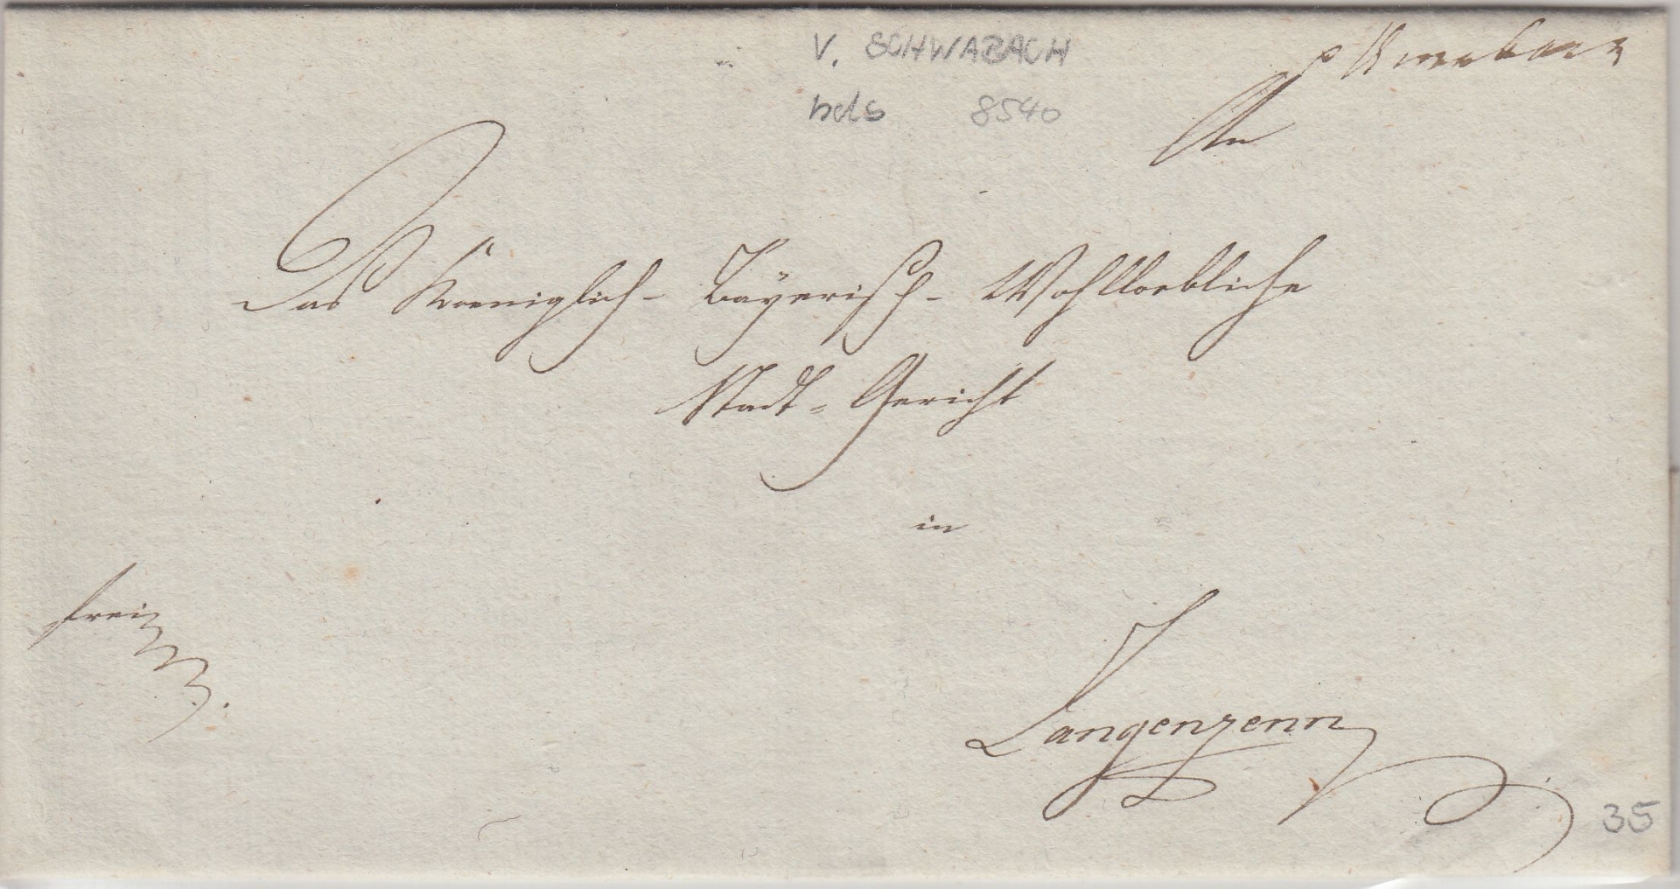 V. SCHWABACH
hds 8540
An
Das Koeniglich- Bayerisch- Wohlloebliche
Stadt- Gericht
in
frei
Langenzenn
35